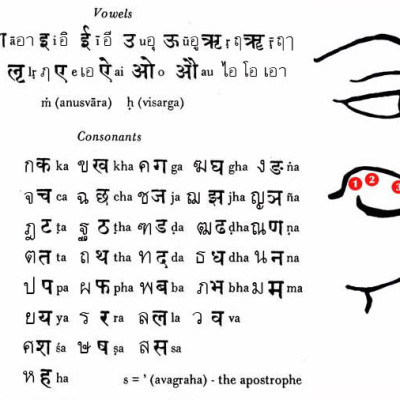 Vowels
āอา इ iอิ ई īอี उ uอุ ऊ ūอู ऋ ṛ ฤ ॠ ṝ ฤๅ
ऌ lṛ ฦ ए e เอ ऐ ai ओ o औ au ไอ โอ เอา
ṁ (anusvāra) ḥ (visarga)
Consonants
ก क ka ข ख kha ค ग ga ฆ घ gha ง ङ ṅa
จ च ca ฉ छ cha ช ज ja ฌ झ jha ญ ञ ña
ฏ ट ṭa ฐ ठ ṭha ฑ ड ḍa ฒ ढ ḍha ณ ण ṇa
ต त ta ถ थ tha ท द da ธ ध dha น न na
ป प pa ผ फ pha พ ब ba ภ भ bha ม म ma
ย य ya ร र ra ล ल la ว व va
ศ श śa ษ ष ṣa ส स sa
ห ह ha s = ’ (avagraha) - the apostrophe
1 2 3